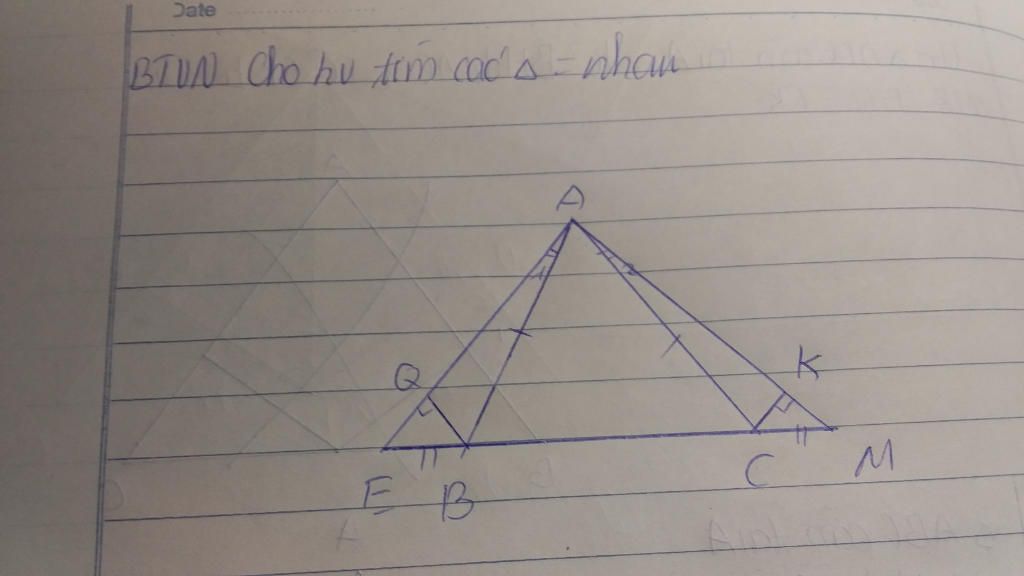 Date
BTVN Cho hv tìm các Δ = nhau
A
Q
K
E B C M